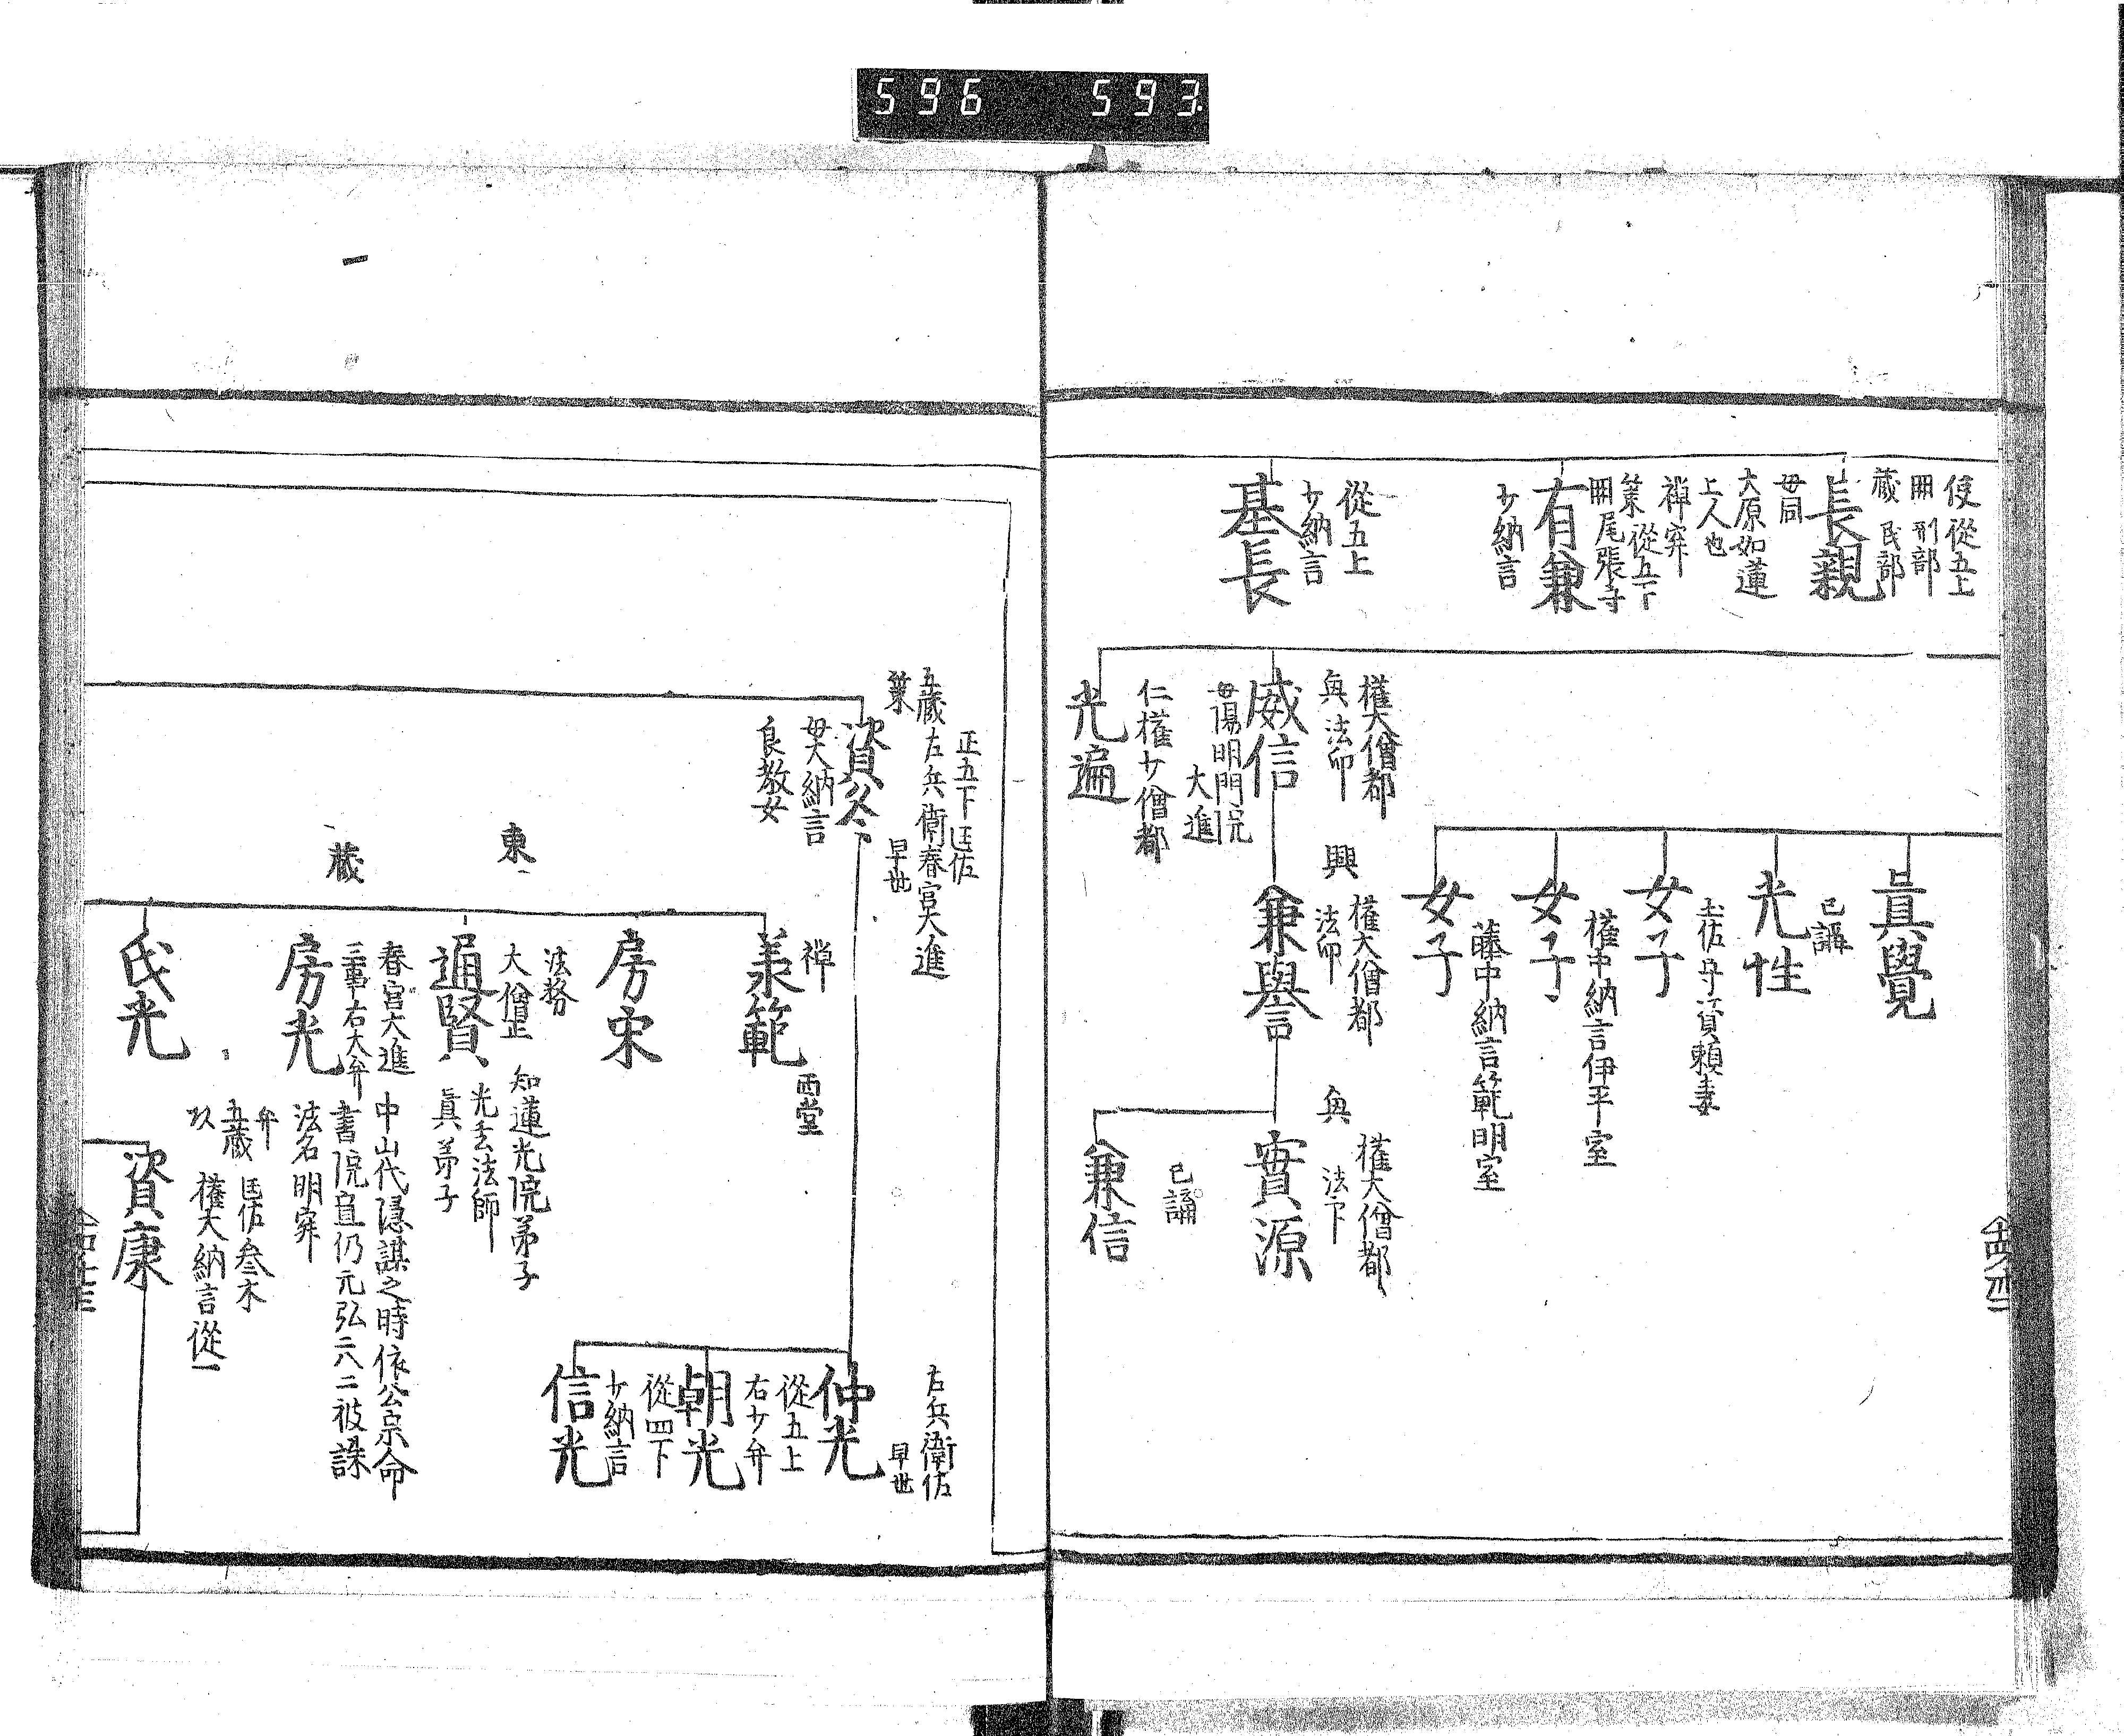 596 593
使 從五上
刑部
藏 民部
長親
母同
大原如蓮
上人也
禅寂
策 從五下
尾張守
有兼
少納言
從五上
少納言
基長
權大僧都
法印
威信
母陽明門院
大進
仁 權少僧都
光遍
眞覺
已講
光性
土佐守資頼妻
女子
權中納言伊平室
女子
藤中納言範明室
女子
興
權大僧都
法印
兼譽
權大僧都
法印
實源
已講
兼信
正五下
五藏 左兵衛春宮大進
策
早世
資冬
母大納言
良教女
左兵衛佐
早世
仲光
從五上
右少弁
朝光
從四下
少納言
信光
禅
範
西堂
房宗
東
法務
大僧正
通賢
知蓮光院弟子
法師
眞弟子
藏
春宮大進
三事右大弁
房光
中山代隠謀之時依公宗命
書院宣仍元弘二八二被誅
法名明寂
氏光
弁
五藏
權大納言從一
資康